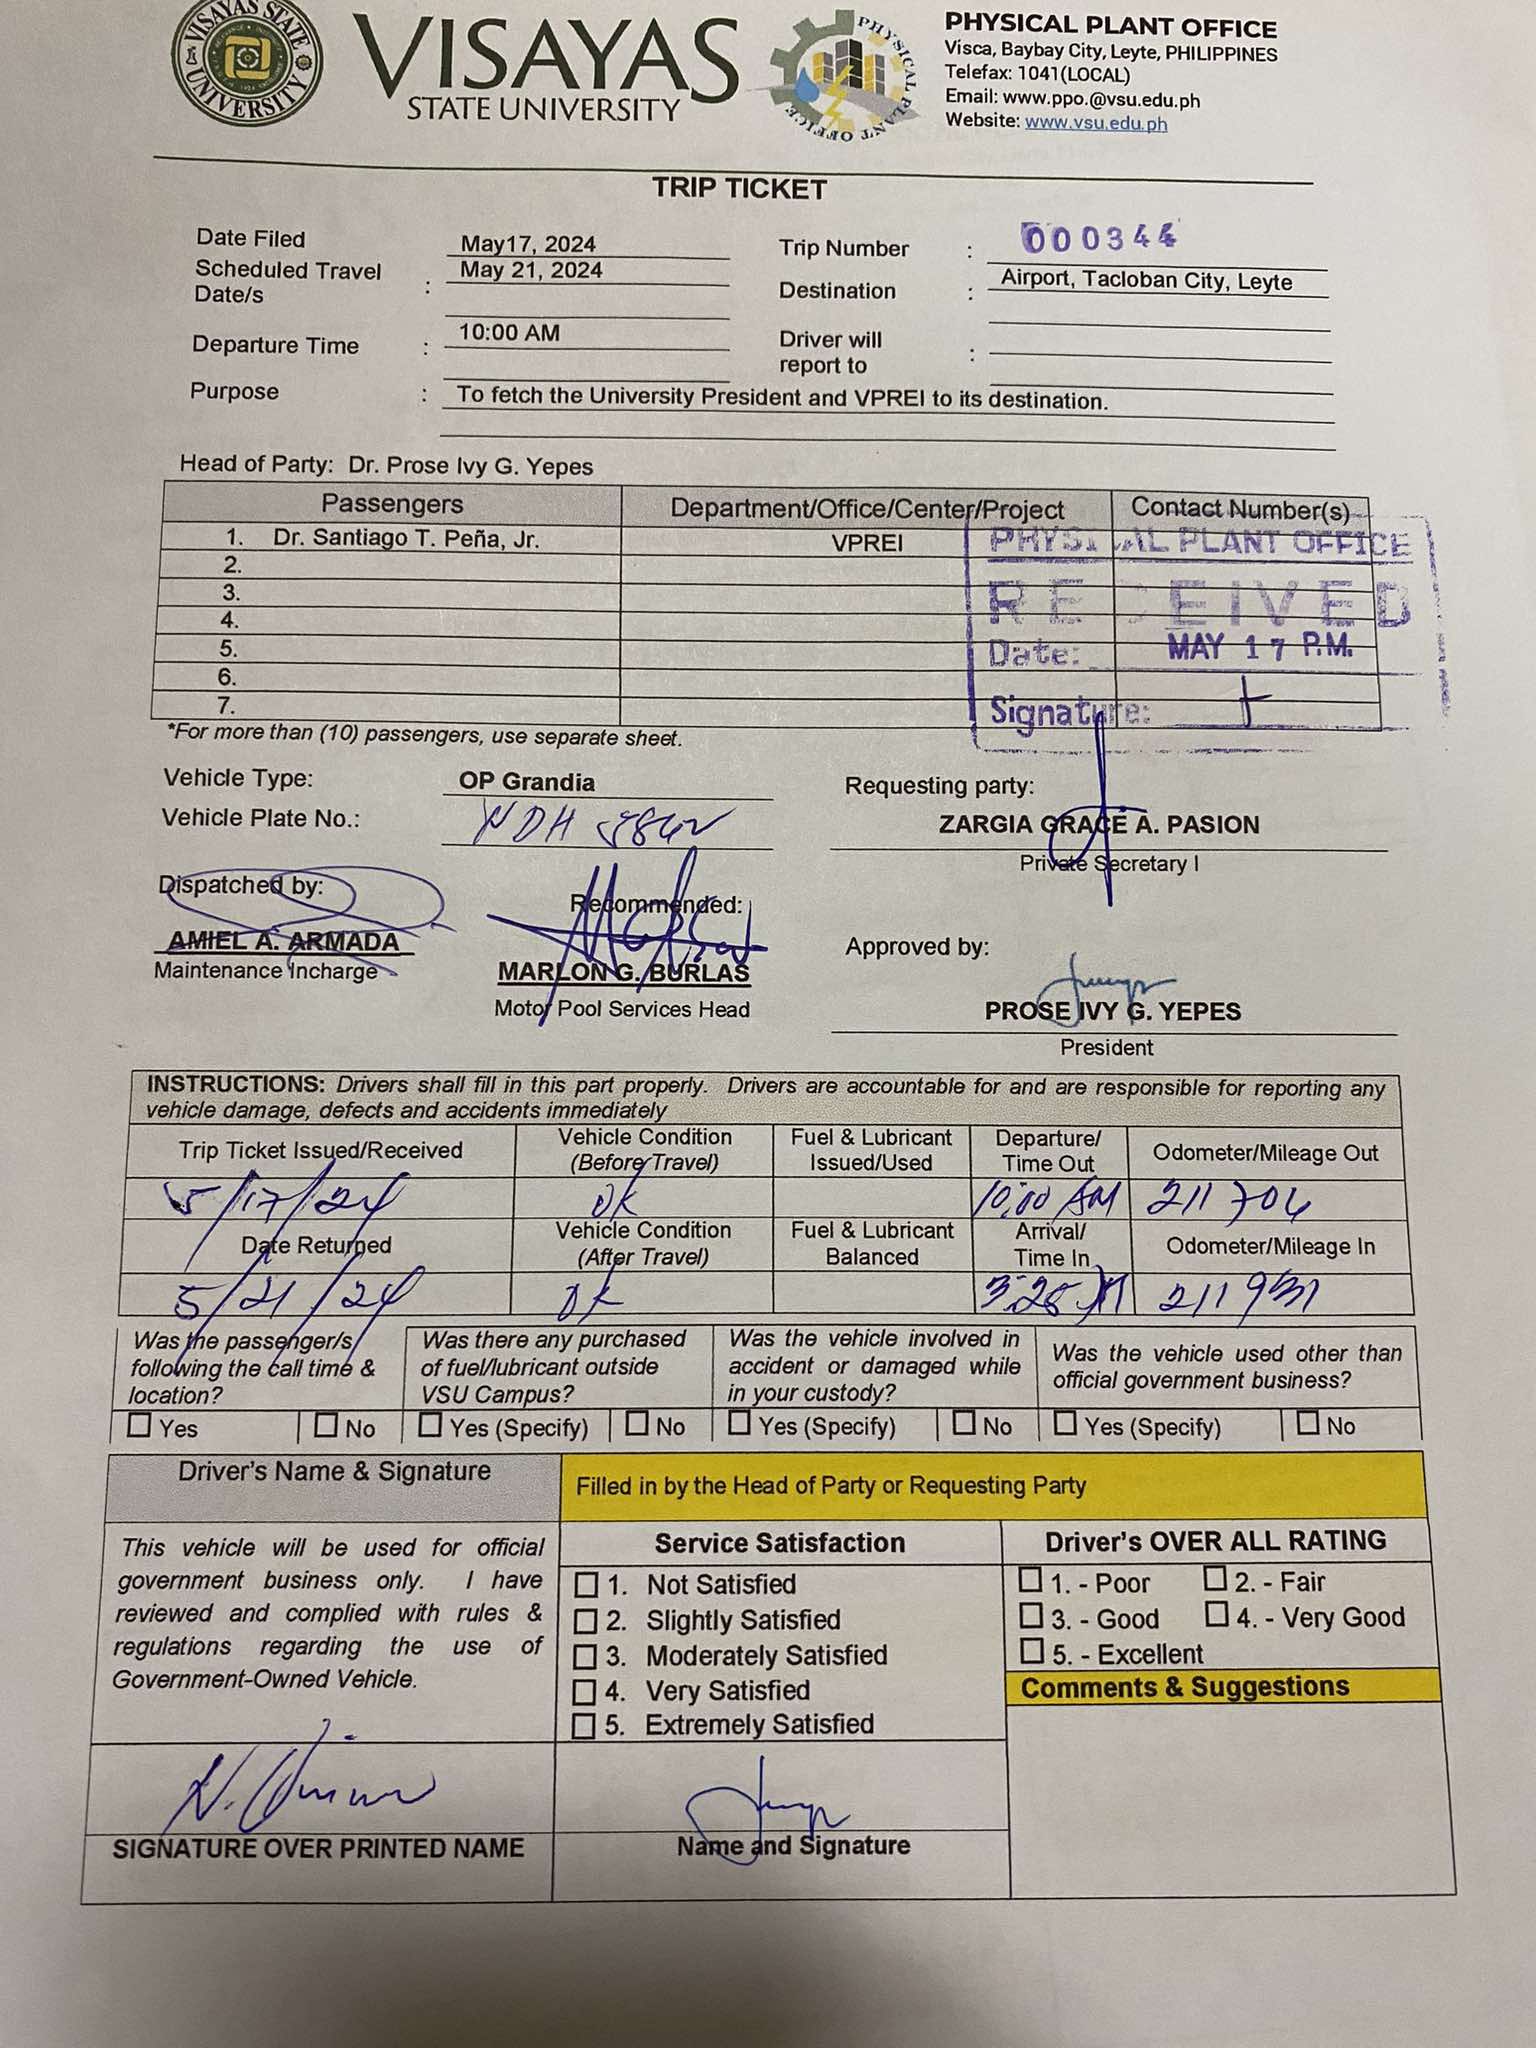 VISAYAS STATE UNIVERSITY
VISAYAS
STATE UNIVERSITY
PHYSICAL PLANT OFFICE
PHYSICAL PLANT OFFICE
Visca, Baybay City, Leyte, PHILIPPINES
Telefax: 1041(LOCAL)
Email: www.ppo.@vsu.edu.ph
Website: www.vsu.edu.ph
TRIP TICKET
Date Filed May17, 2024 Trip Number : 000344
Scheduled Travel Date/s : May 21, 2024 Destination : Airport, Tacloban City, Leyte
Departure Time : 10:00 AM Driver will report to :
Purpose : To fetch the University President and VPREI to its destination.
Head of Party: Dr. Prose Ivy G. Yepes
Passengers Department/Office/Center/Project Contact Number(s)
1. Dr. Santiago T. Peña, Jr. VPREI
2.
3.
4.
5.
6.
7.
PHYSICAL PLANT OFFICE
RECEIVED
Date: MAY 17 P.M.
Signature:
*For more than (10) passengers, use separate sheet.
Vehicle Type: OP Grandia
Vehicle Plate No.:
Requesting party:
ZARGIA GRACE A. PASION
Private Secretary I
Dispatched by:
AMIEL A. ARMADA
Maintenance Incharge
Recommended:
MARLON G. BURLAS
Motor Pool Services Head
Approved by:
PROSE IVY G. YEPES
President
INSTRUCTIONS: Drivers shall fill in this part properly. Drivers are accountable for and are responsible for reporting any
vehicle damage, defects and accidents immediately
Trip Ticket Issued/Received Vehicle Condition (Before Travel) Fuel & Lubricant Issued/Used Departure/ Time Out Odometer/Mileage Out
5/17/24 OK 10:00 AM 211706
Date Returned Vehicle Condition (After Travel) Fuel & Lubricant Balanced Arrival/ Time In Odometer/Mileage In
5/21/24 OK 3:25 211931
Was the passenger/s following the call time & location?
Yes No
Was there any purchased of fuel/lubricant outside VSU Campus?
Yes (Specify) No
Was the vehicle involved in accident or damaged while in your custody?
Yes (Specify) No
Was the vehicle used other than official government business?
Yes (Specify) No
Driver's Name & Signature
This vehicle will be used for official
government business only. I have
reviewed and complied with rules &
regulations regarding the use of
Government-Owned Vehicle.
SIGNATURE OVER PRINTED NAME
Filled in by the Head of Party or Requesting Party
Service Satisfaction
1. Not Satisfied
2. Slightly Satisfied
3. Moderately Satisfied
4. Very Satisfied
5. Extremely Satisfied
Name and Signature
Driver's OVER ALL RATING
1. - Poor 2. - Fair
3. - Good 4. - Very Good
5. - Excellent
Comments & Suggestions